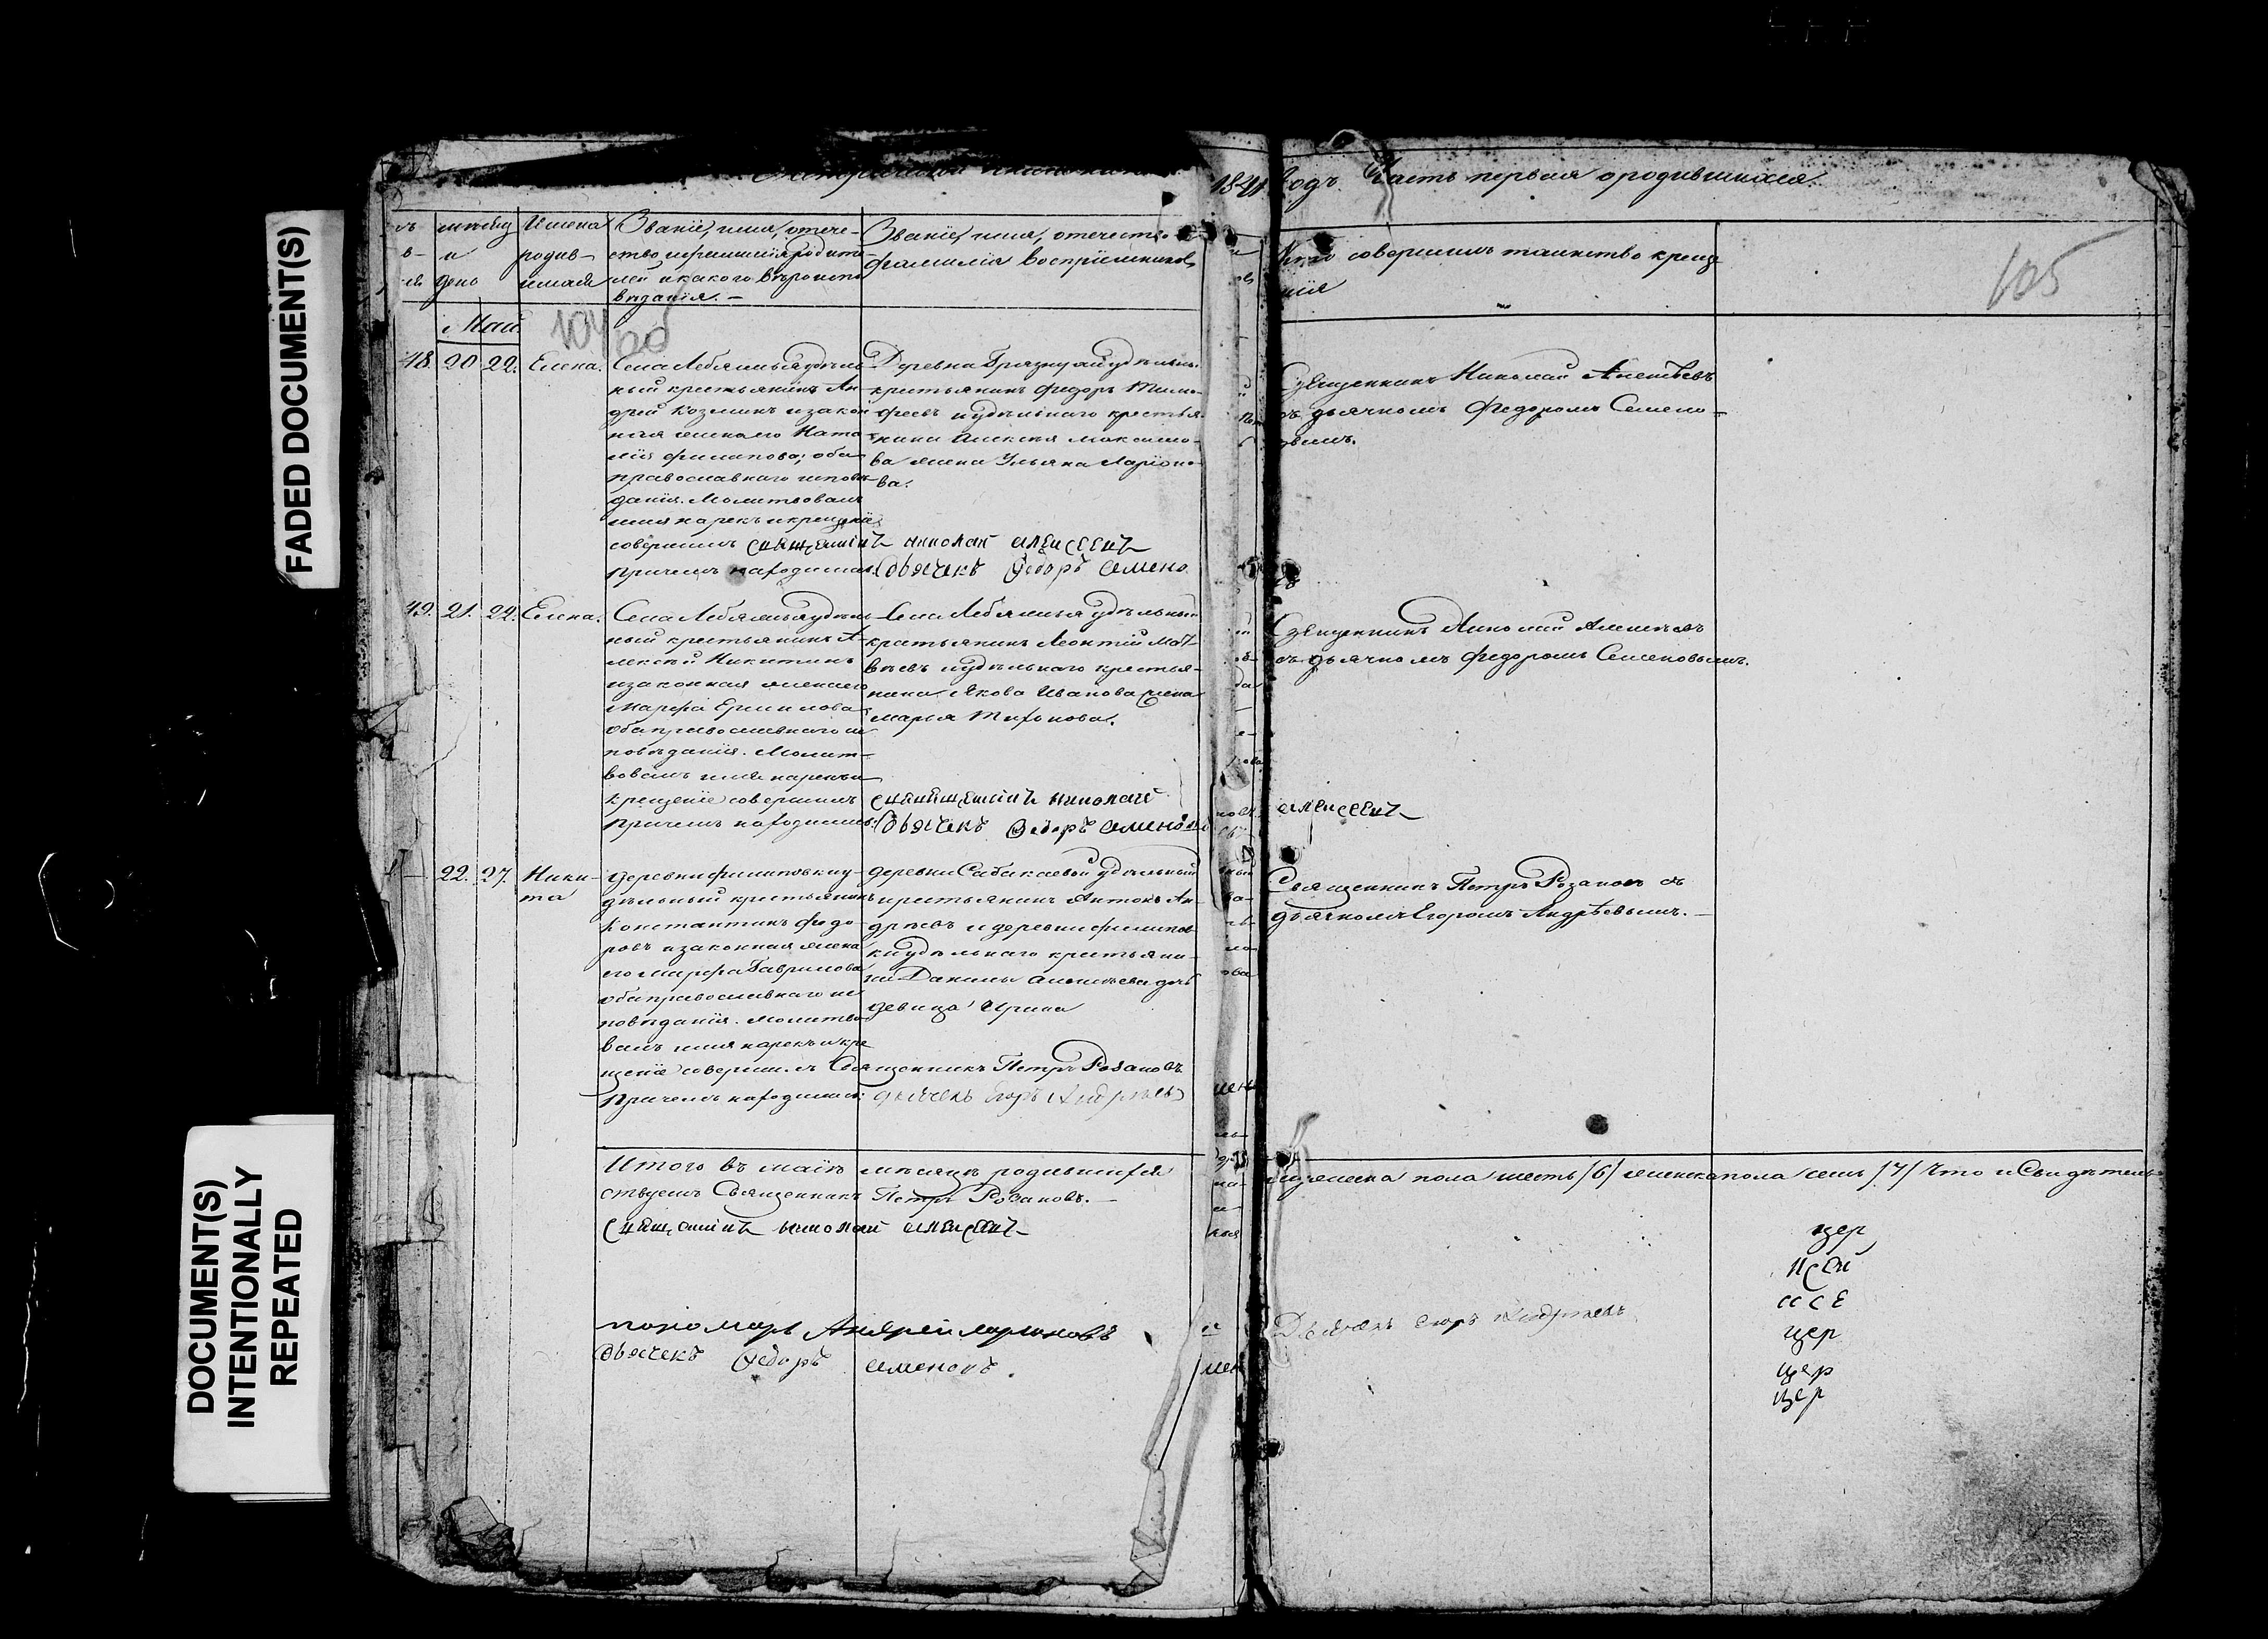 FADED DOCUMENT(S)
DOCUMENT(S)
INTENTIONALLY
REPEATED
1841 Годъ. Часть первая о родившихся.
мѣсяц
и
день
Имена
родив-
шихся
Званіе, имя, отече-
ство и фамилія родите-
лей и какого вѣроиспо
вѣданія. —
Званіе, имя, отечество
фамилія воспріемниковъ
Кто совершилъ таинство креще
нія
105
Май
104
48. 20 22. Елена.
Села Лебяжья удѣль
ный крестьянинъ Ан-
дрей Козминъ и закон
ная жена его Ната-
лія Филипова; оба
православнаго исповѣ
данія. Молитвовалъ
имя нарекъ и крещеніе
совершилъ священникъ николай алексеевъ
Причемъ находился: дьячекъ Федоръ Семено
въ
Деревни Грязнухи удѣльн.
крестьянинъ Федоръ Тимо-
феевъ и удѣльнаго крестья-
нина Алексея Максимо-
ва жена Ульяна Ларіоно-
ва.
Священникъ Николай Алексѣевъ
съ дьячкомъ Федоромъ Семено-
вымъ.
49. 21. 22. Елена.
Села Лебяжья удѣль-
ный крестьянинъ А-
лексѣй Никитинъ
и законная жена его
Марфа Ермилова
оба православнаго ис
повѣданія. Молит-
вовалъ имя нарекъ и
крещеніе совершилъ священникъ николай алексеевъ
Причемъ находился: дьячекъ Федоръ Семеновъ
Села Лебяжья удѣльный
крестьянинъ Леонтій Мат-
вѣевъ и удѣльнаго крестья-
нина Якова Иванова жена
Марья Тихонова.
Священникъ Николай Алексѣевъ
съ дьячкомъ Федоромъ Семеновымъ.
22. 27. Ники-
та
Деревни Филиповки у-
дѣльный крестьянинъ
Константинъ Федо-
ровъ и законная жена
его Марфа Гаврилова
оба православнаго ис
повѣданія. Молитво
валъ имя нарекъ и кре
щеніе совершилъ Священникъ Петръ Розановъ
Причемъ находился: дьячекъ Егоръ Андреевъ
деревни Сабакаевой удѣльный
крестьянинъ Антонъ Ан-
дрѣевъ и деревни Филипов
ки удѣльнаго крестьяни-
на Данилы Алексѣева дочь
девица Ирина
Священникъ Петръ Розановъ съ
дьячкомъ Егоромъ Андрѣевымъ. —
Итого въ маіѣ мѣсяцѣ родившихся мужеска пола шесть /6/ женска пола семь /7/ Что и Свидѣтель
ствуемъ Священникъ Петръ Розановъ. —
священникъ николай алексеевъ
пономарь Андрей Ларионовъ
Дьячекъ Егоръ Андреевъ
дьячекъ Федоръ семеновъ.